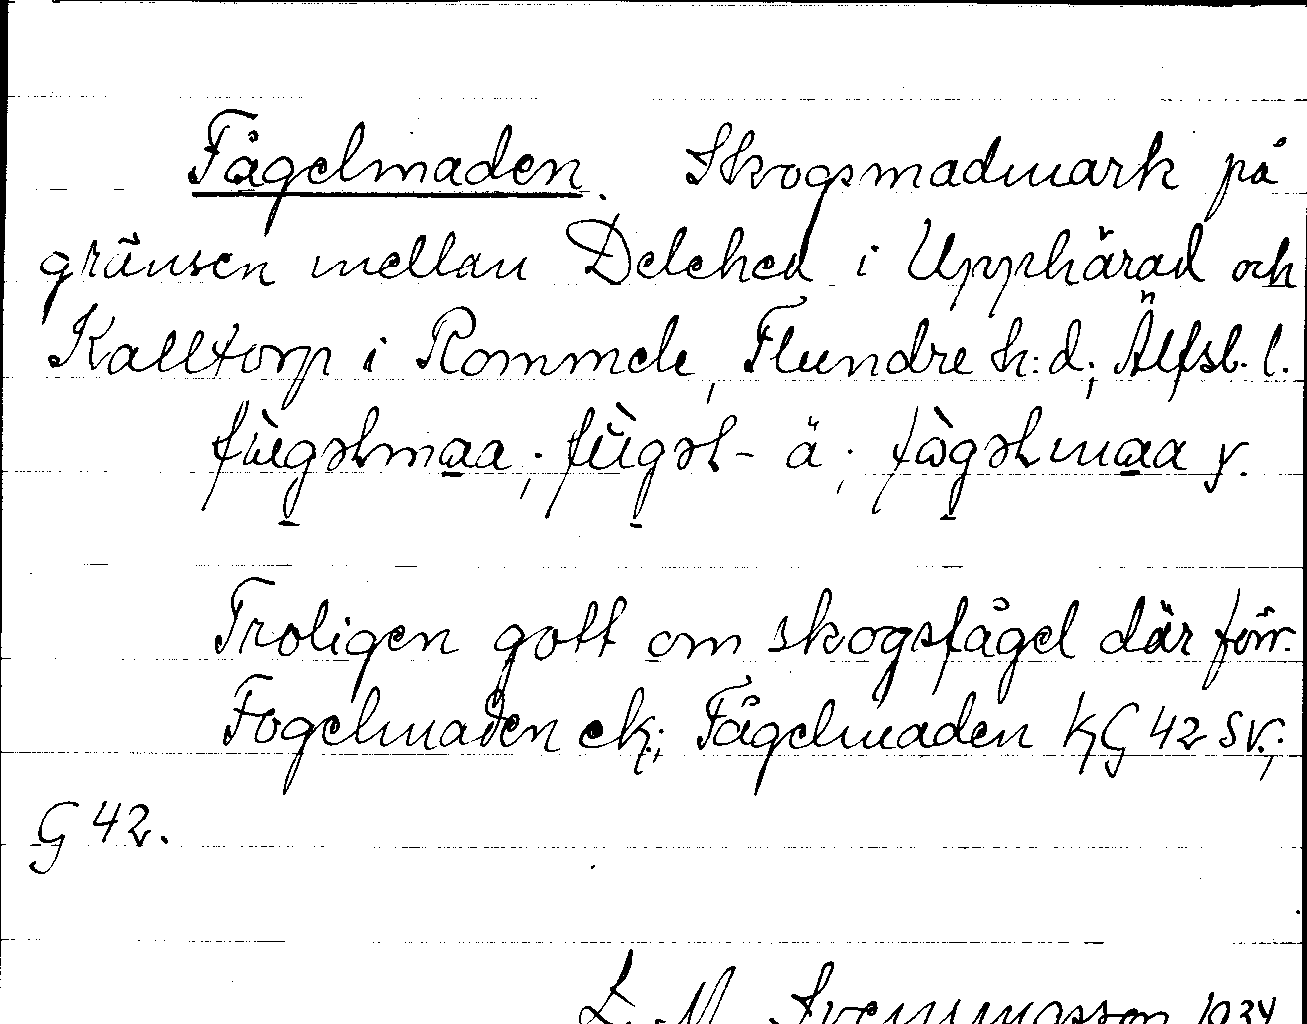 Fågelmaden. Skogsmadmark på
gränsen mellan Delehed i Upphärad och
Kalltorp i Rommele, Flundre h:d, Älfsb. l.
Troligen gott om skogsfågel där förr.
Fogelmaden ek; Fågelmaden KG 42 sv.;
G 42.
1934